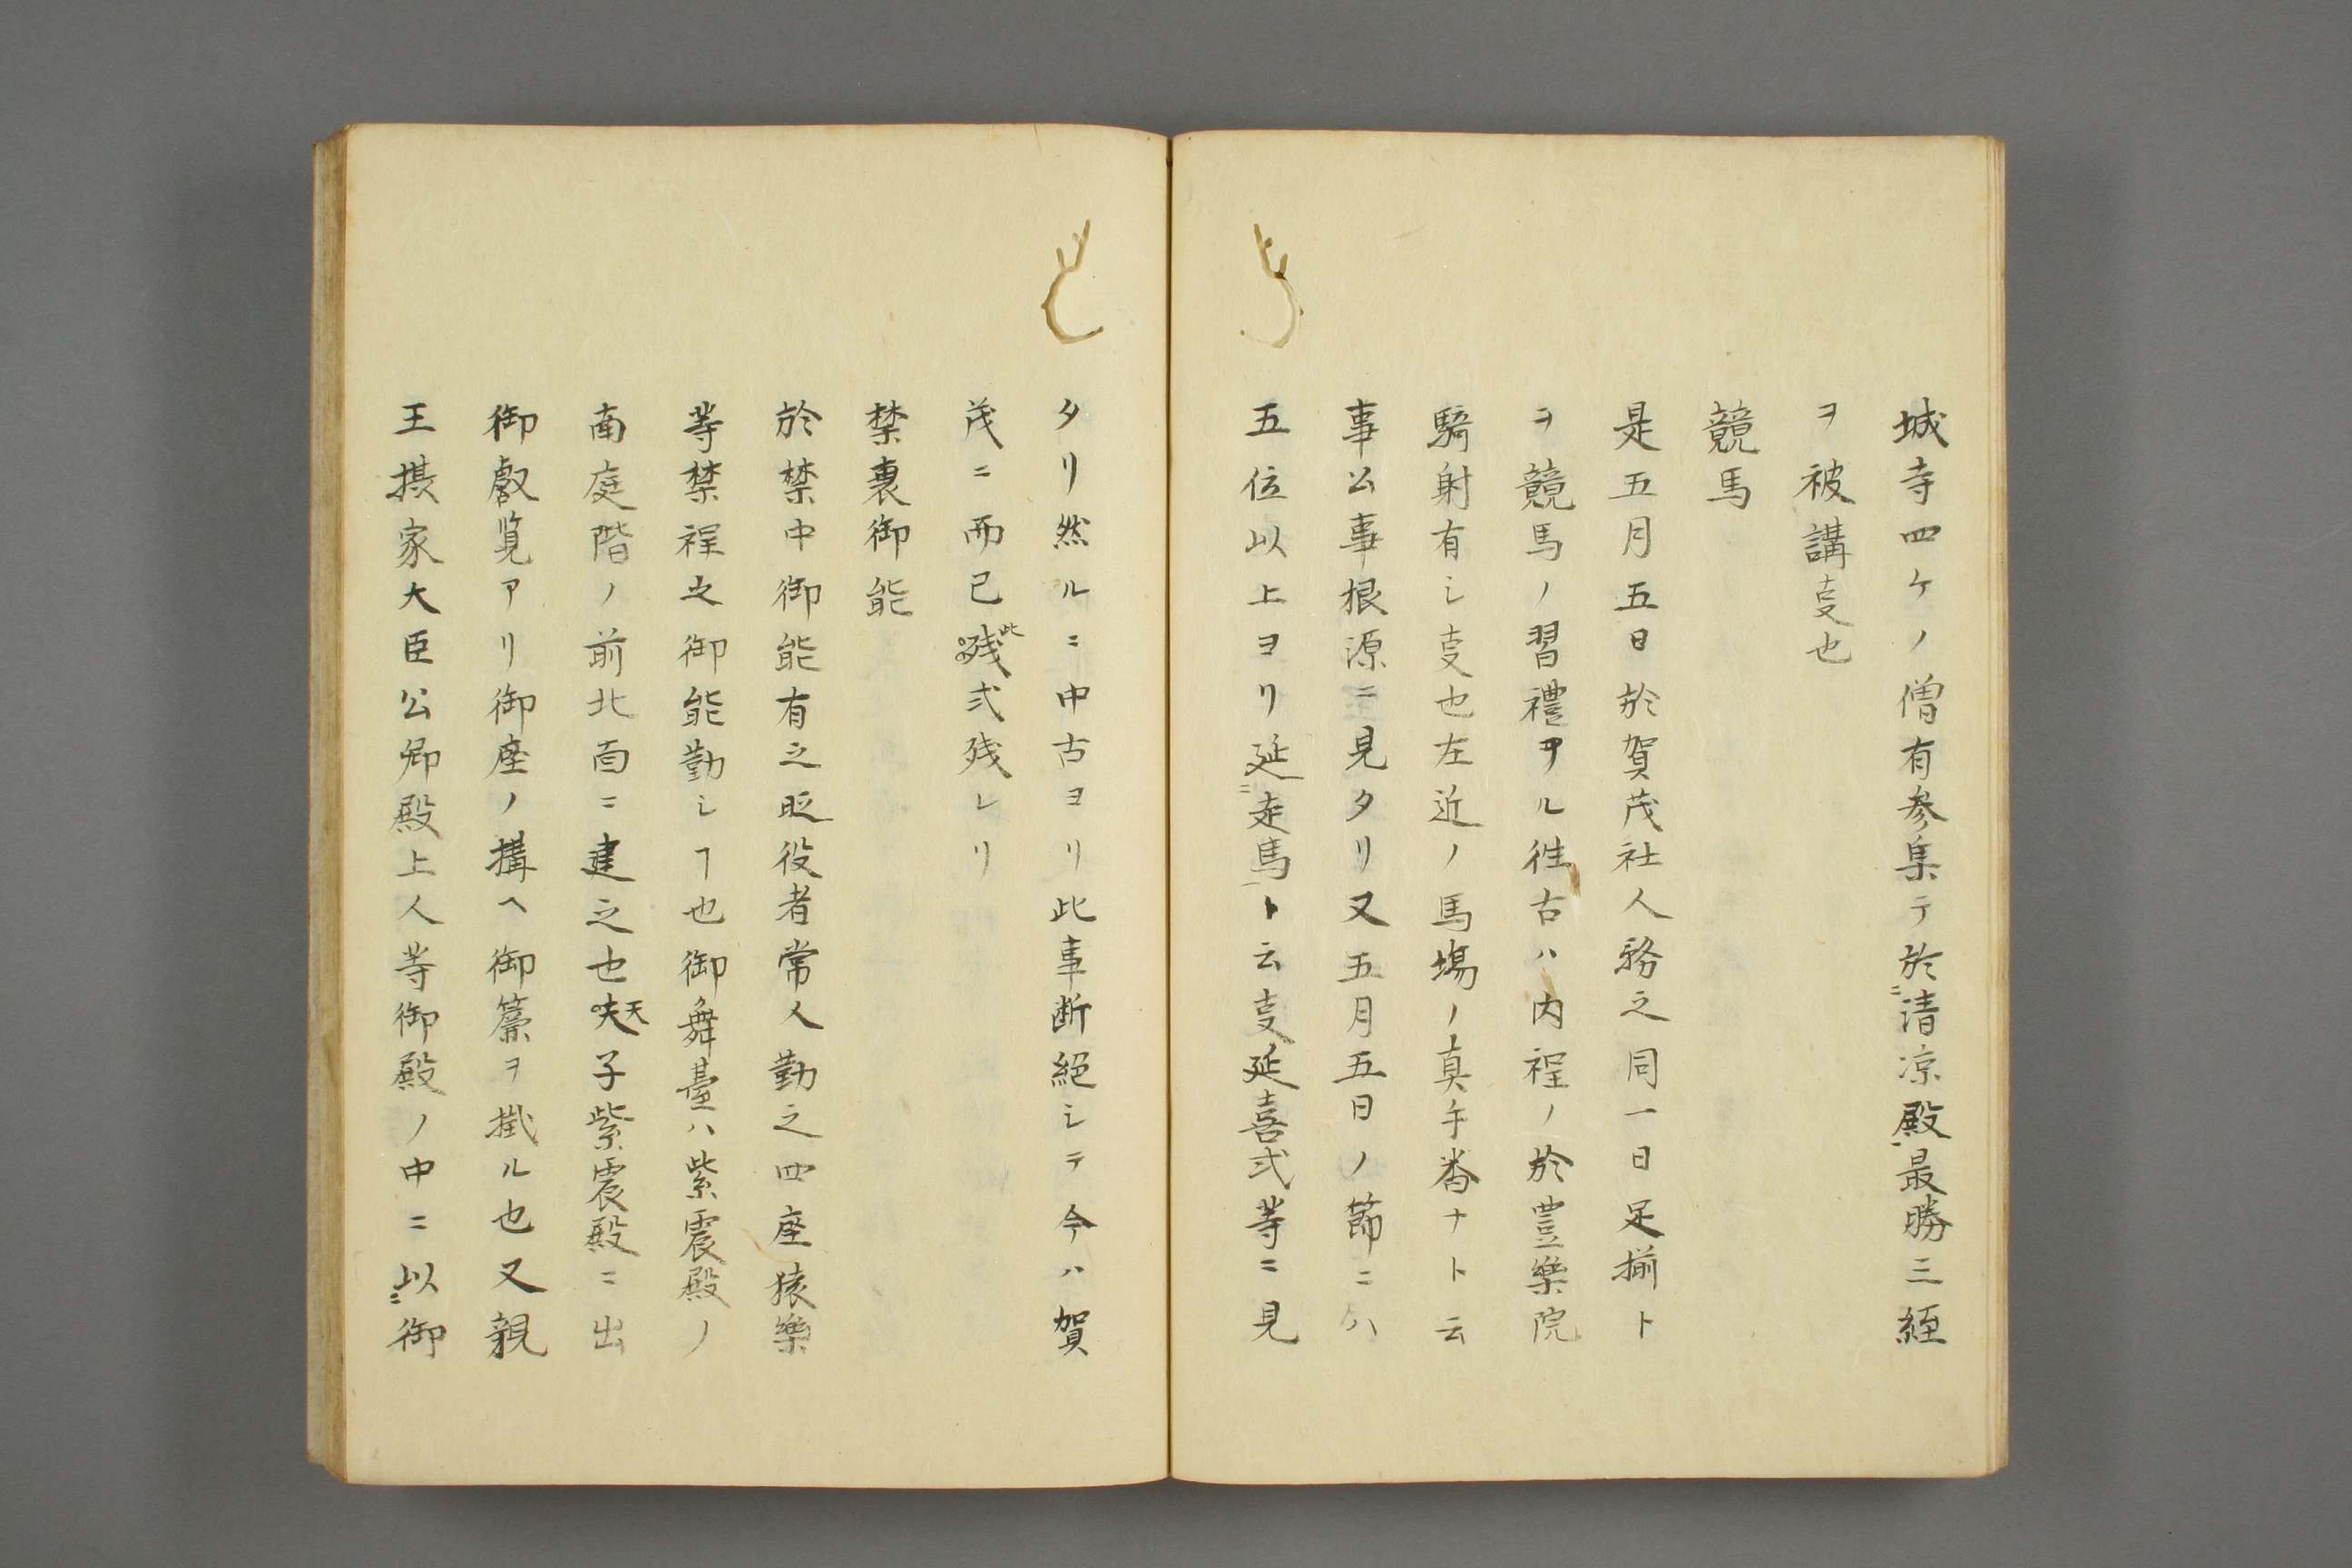 城寺四ケノ僧有参集テ於清凉殿ニ最勝三經
ヲ被講叓也
競馬
是五月五日於賀茂社人務之同一日足揃ト
ヲ競馬ノ習禮ヲル徃古ハ内裡ノ於豊樂院
騎射有シ叓也左近ノ馬場ノ真手畨ナト云
事公事根源ニ見タリ又五月五日ノ節ニハ
五位以上ヨリ延ニ走馬ト云叓延喜式等ニ見
タリ然ルニ中古ヨリ此事断絶シテ今ハ賀
茂ニ而已残此式残レリ
禁裏御能
於禁中御能有之昵役者常人勤之四座猿樂
等禁裡之御能勤シヿ也御舞臺ハ紫震殿ノ
南庭階ノ前北面ニ建之也天子紫震殿ニ出
御叡覧アリ御座ノ搆ヘ御簾ヲ掛ル也又親
王摂家大臣公卿殿上人等御殿ノ中ニ以ニ御